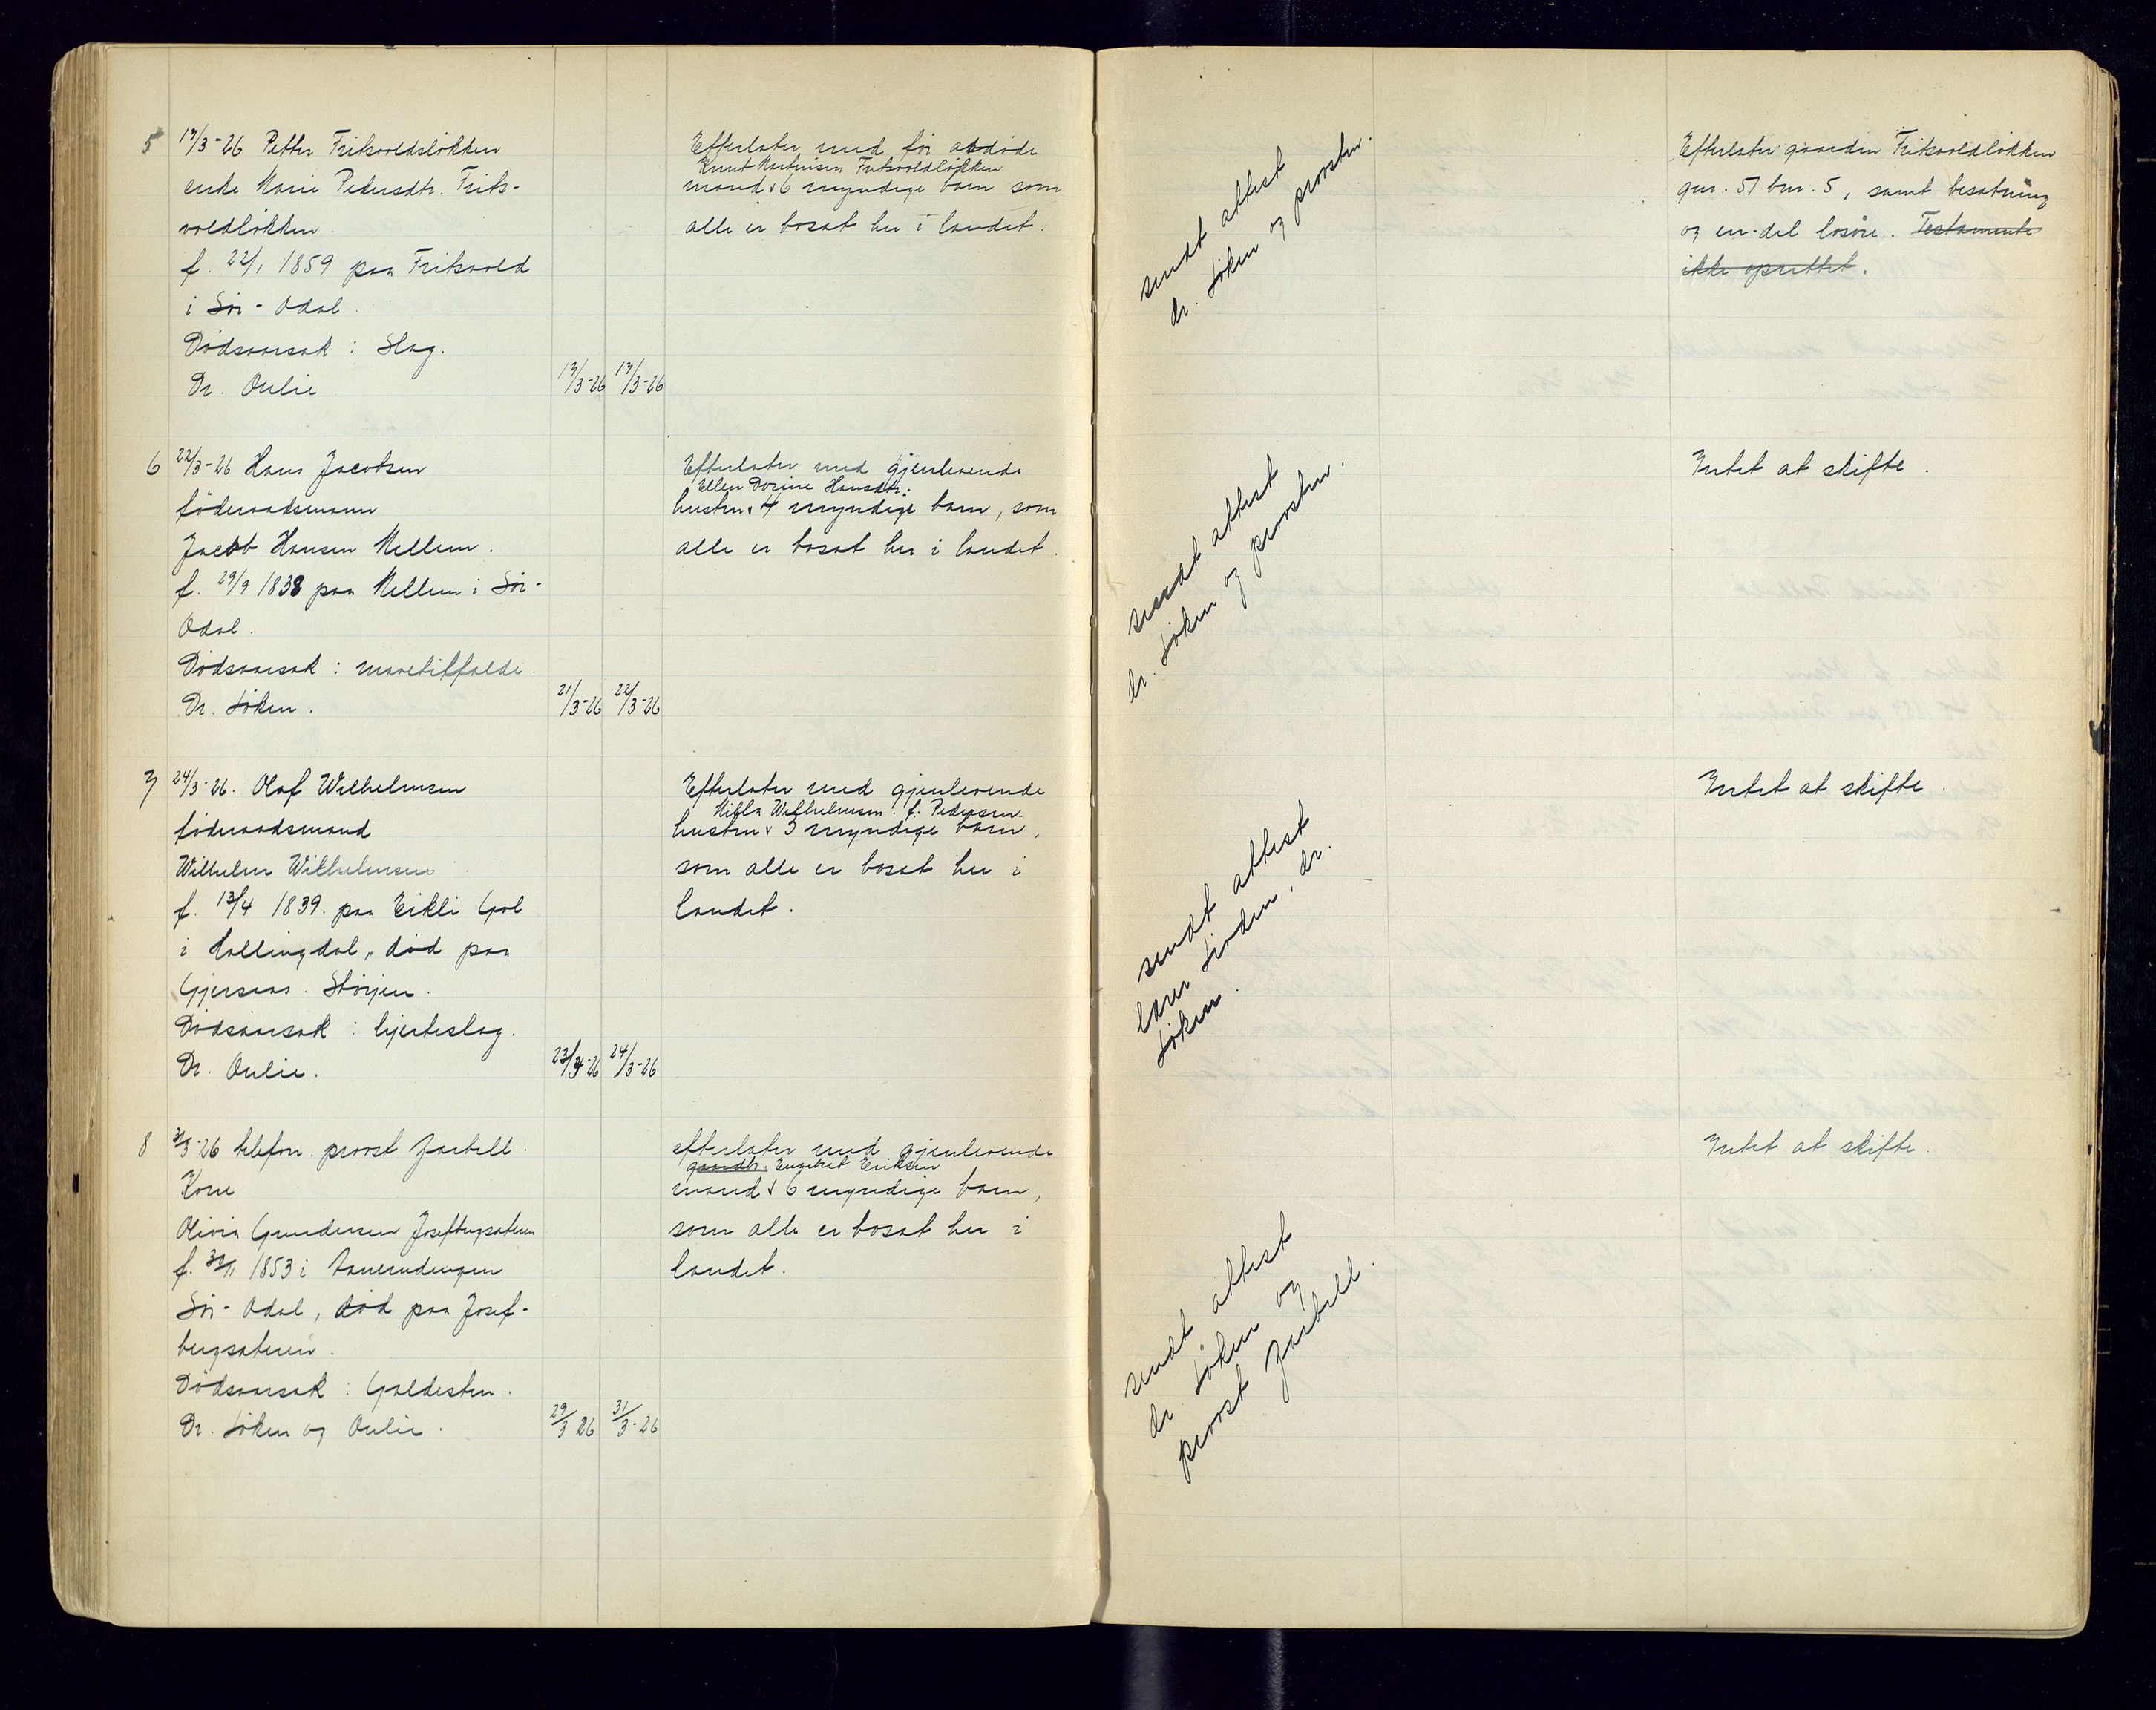 5 17/3-26 Petter Friksvoldsløkken
enke Marie Pedersdtr. Friks-
voldløkken.
f. 22/1 1859 paa Friksvold
i Sør-Odal.
Dødsaarsak: Slag.
Dr. Aulie
17/3-26 17/3-26
Efterlater med før avdøde
Knut Martinsen Friksvoldløkken
mand v 6 myndige barn som
alle er bosat her i landet.
sendt attest
dr. Løken og provsten.
Efterlater gaarden Friksvoldløkken
gnr. 57 bnr. 5, samt besætning
og en-del løsøre. Testamente
ikke oprettet.
6 22/3-26 Hans Jacobsen
føderaadsmann
Jacob Hansen Mellem.
f. 29/9 1838 paa Mellem i Sør-
Odal.
Dødsaarsak: mavetilfælde.
Dr. Løken.
21/3-26 22/3-26
Efterlater med gjenlevende
Ellen Dorine Hansdtr:
hustru v 4 myndige barn, som
alle er bosat her i landet.
sendt attest
dr. Løken og provsten.
Intet at skifte.
7 24/3-26. Olaf Wilhelmsen
føderaadsmand
Wilhelm Wilhelmsen
f. 13/4 1839. paa Eikli Gol
i Hallingdal, død paa
Gjersaas. Størjen.
Dødsaarsak: hjerteslag.
Dr. Aulie.
23/3-26 24/3-26
Efterlater med gjenlevende
Milla Wilhelmsen f. Pedersen.
hustru v 3 myndige barn,
som alle er bosat her i
landet.
sendt attest
lærer Linden, dr.
Løken.
Intet at skifte.
8 31/3-26 telefon. provst Zarbell.
Kone
Olivia Gundersen Josefbergsæteren
f. 1853 i
Sør-Odal, død paa Josef-
bergsæteren.
Dødsaarsak: Galdesten.
Dr. Løken og Aulie.
29/3 26 31/3-26
efterlater med gjenlevende
gaardbr. Engebret Eriksen
mand v 6 myndige barn,
som alle er bosat her i
landet.
sendt attest
dr. Løken og
provst Zarbell.
Intet at skifte.